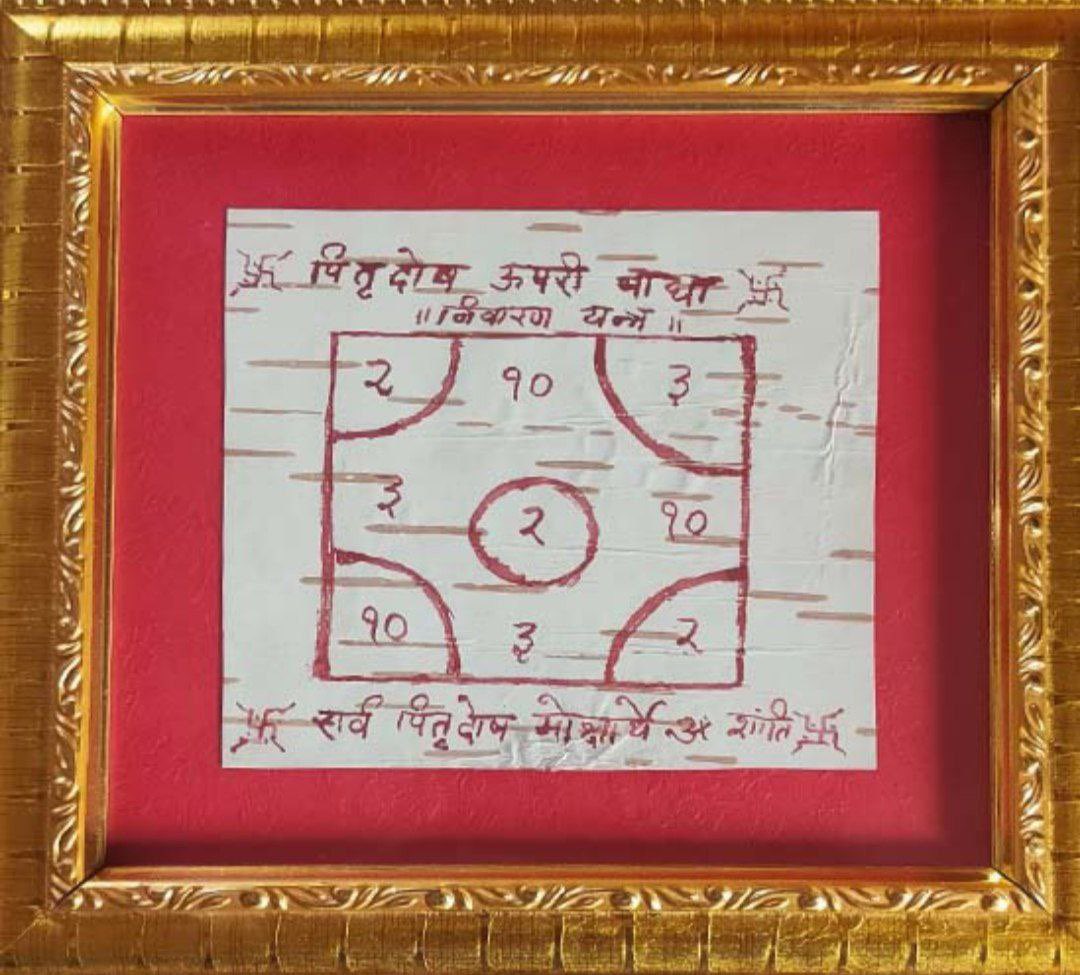 पितृदोष ऊपरी बाधा
॥ निवारण यन्त्र ॥
२ १० ३
३ २ १०
१० ३ २
सर्व पितृदोष मोक्षार्थे ॐ शांति